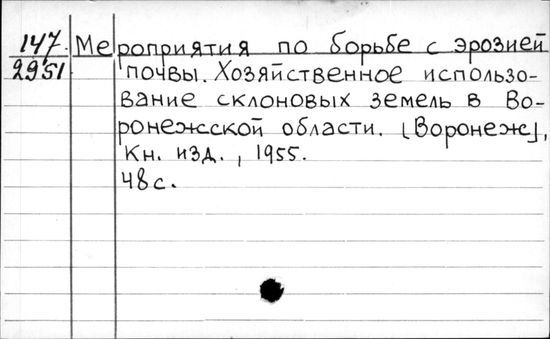 147 Мероприятия по борьбе с эрозией
2951 почвы. Хозяйственное использо-
вание склоновых земель в Во-
ронежской области. [Воронеж],
Кн. изд., 1955.
48 с.